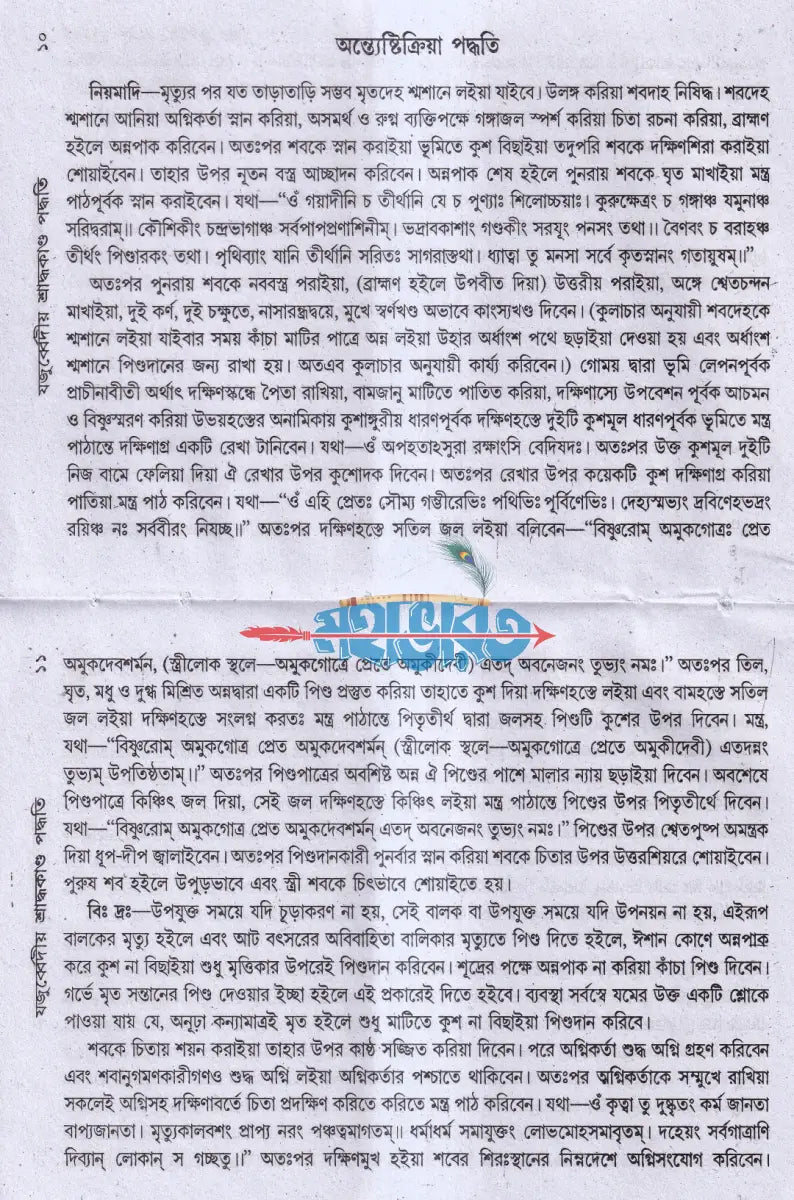 ১০
অন্ত্যেষ্টিক্রিয়া পদ্ধতি
যজুর্ব্বেদীয় শ্রাদ্ধকাণ্ড পদ্ধতি
নিয়মাদি—মৃত্যুর পর যত তাড়াতাড়ি সম্ভব মৃতদেহ শ্মশানে লইয়া যাইবে। উলঙ্গ করিয়া শবদাহ নিষিদ্ধ। শবদেহ
শ্মশানে আনিয়া অগ্নিকর্তা স্নান করিয়া, অসমর্থ ও রুগ্ন ব্যক্তিপক্ষে গঙ্গাজল স্পর্শ করিয়া চিতা রচনা করিয়া, ব্রাহ্মণ
হইলে অন্নপাক করিবেন। অতঃপর শবকে স্নান করাইয়া ভূমিতে কুশ বিছাইয়া তদুপরি শবকে দক্ষিণশিরা করাইয়া
শোয়াইবেন। তাহার উপর নূতন বস্ত্র আচ্ছাদন করিবেন। অন্নপাক শেষ হইলে পুনরায় শবকে ঘৃত মাখাইয়া মন্ত্র
পাঠপূর্বক স্নান করাইবেন। যথা—“ওঁ গয়াদীনি চ তীর্থানি যে চ পুণ্যাঃ শিলোচ্চয়াঃ। কুরুক্ষেত্রং চ গঙ্গাঞ্চ যমুনাঞ্চ
সরিদ্বরাম্॥ কৌশিকীং চন্দ্রভাগাঞ্চ সর্বপাপপ্রণাশিনীম্। ভদ্রাবকাশাং গণ্ডকীং সরযূং পনসং তথা॥ বৈণবং চ বরাহঞ্চ
তীর্থং পিণ্ডারকং তথা। পৃথিব্যাং যানি তীর্থানি সরিতঃ সাগরাস্তথা। ধ্যাত্বা তু মনসা সর্বে কৃতস্নানং গতায়ুষম্॥”
অতঃপর পুনরায় শবকে নববস্ত্র পরাইয়া, (ব্রাহ্মণ হইলে উপবীত দিয়া) উত্তরীয় পরাইয়া, অঙ্গে শ্বেতচন্দন
মাখাইয়া, দুই কর্ণ, দুই চক্ষুতে, নাসারন্ধ্রদ্বয়ে, মুখে স্বর্ণখণ্ড অভাবে কাংস্যখণ্ড দিবেন। (কুলাচার অনুযায়ী শবদেহকে
শ্মশানে লইয়া যাইবার সময় কাঁচা মাটির পাত্রে অন্ন লইয়া উহার অর্ধাংশ পথে ছড়াইয়া দেওয়া হয় এবং অর্ধাংশ
শ্মশানে পিণ্ডদানের জন্য রাখা হয়। অতএব কুলাচার অনুযায়ী কার্য্য করিবেন।) গোময় দ্বারা ভূমি লেপনপূর্বক
প্রাচীনাবীতী অর্থাৎ দক্ষিণস্কন্ধে পৈতা রাখিয়া, বামজানু মাটিতে পাতিত করিয়া, দক্ষিণাস্যে উপবেশন পূর্বক আচমন
ও বিষ্ণুস্মরণ করিয়া উভয়হস্তের অনামিকায় কুশাঙ্গুরীয় ধারণপূর্বক দক্ষিণহস্তে দুইটি কুশমূল ধারণপূর্বক ভূমিতে মন্ত্র
পাঠান্তে দক্ষিণাগ্র একটি রেখা টানিবেন। যথা—ওঁ অপহতাহসুরা রক্ষাংসি বেদিষদঃ। অতঃপর উক্ত কুশমূল দুইটি
নিজ বামে ফেলিয়া দিয়া ঐ রেখার উপর কুশোদক দিবেন। অতঃপর রেখার উপর কয়েকটি কুশ দক্ষিণাগ্র করিয়া
পাতিয়া মন্ত্র পাঠ করিবেন। যথা—“ওঁ এহি প্রেতঃ সৌম্য গম্ভীরেভিঃ পথিভিঃ পূর্বিণেভিঃ। দেহ্যস্মভ্যং দ্রবিণেহভদ্রং
রয়িঞ্চ নঃ সর্ববীরং নিযচ্ছ॥” অতঃপর দক্ষিণহস্তে সতিল জল লইয়া বলিবেন—“বিষ্ণুরোম্ অমুকগোত্রঃ প্রেত
মহাভারত
১১
যজুর্ব্বেদীয় শ্রাদ্ধকাণ্ড পদ্ধতি
অমুকদেবশর্মন, (স্ত্রীলোক স্থলে—অমুকগোত্রে প্রেতে অমুকীদেবী) এতদ্ অবনেজনং তুভ্যং নমঃ।” অতঃপর তিল,
ঘৃত, মধু ও দুগ্ধ মিশ্রিত অন্নদ্বারা একটি পিণ্ড প্রস্তুত করিয়া তাহাতে কুশ দিয়া দক্ষিণহস্তে লইয়া এবং বামহস্তে সতিল
জল লইয়া দক্ষিণহস্তে সংলগ্ন করতঃ মন্ত্র পাঠান্তে পিতৃতীর্থ দ্বারা জলসহ পিণ্ডটি কুশের উপর দিবেন। মন্ত্র,
যথা—“বিষ্ণুরোম্ অমুকগোত্র প্রেত অমুকদেবশর্মন্ (স্ত্রীলোক স্থলে—অমুকগোত্রে প্রেতে অমুকীদেবী) এতদন্নং
তুভ্যম্ উপতিষ্ঠতাম্॥” অতঃপর পিণ্ডপাত্রের অবশিষ্ট অন্ন ঐ পিণ্ডের পাশে মালার ন্যায় ছড়াইয়া দিবেন। অবশেষে
পিণ্ডপাত্রে কিঞ্চিৎ জল দিয়া, সেই জল দক্ষিণহস্তে কিঞ্চিৎ লইয়া মন্ত্র পাঠান্তে পিণ্ডের উপর পিতৃতীর্থে দিবেন।
যথা—“বিষ্ণুরোম্ অমুকগোত্র প্রেত অমুকদেবশর্মন্ এতদ্ অবনেজনং তুভ্যং নমঃ।” পিণ্ডের উপর শ্বেতপুষ্প অমন্ত্রক
দিয়া ধূপ-দীপ জ্বালাইবেন। অতঃপর পিণ্ডদানকারী পুনর্বার স্নান করিয়া শবকে চিতার উপর উত্তরশিয়রে শোয়াইবেন।
পুরুষ শব হইলে উপুড়ভাবে এবং স্ত্রী শবকে চিৎভাবে শোয়াইতে হয়।
বিঃ দ্রঃ—উপযুক্ত সময়ে যদি চূড়াকরণ না হয়, সেই বালক বা উপযুক্ত সময়ে যদি উপনয়ন না হয়, এইরূপ
বালকের মৃত্যু হইলে এবং আট বৎসরের অবিবাহিতা বালিকার মৃত্যুতে পিণ্ড দিতে হইলে, ঈশান কোণে অন্নপাক
করে কুশ না বিছাইয়া শুধু মৃত্তিকার উপরেই পিণ্ডদান করিবেন। শূদ্রের পক্ষে অন্নপাক না করিয়া কাঁচা পিণ্ড দিবেন।
গর্ভে মৃত সন্তানের পিণ্ড দেওয়ার ইচ্ছা হইলে এই প্রকারেই দিতে হইবে। ব্যবস্থা সর্বস্বে যমের উক্ত একটি শ্লোকে
পাওয়া যায় যে, অনূঢ়া কন্যামাত্রই মৃত হইলে শুধু মাটিতে কুশ না বিছাইয়া পিণ্ডদান করিবে।
শবকে চিতায় শয়ন করাইয়া তাহার উপর কাষ্ঠ সজ্জিত করিয়া দিবেন। পরে অগ্নিকর্তা শুদ্ধ অগ্নি গ্রহণ করিবেন
এবং শবানুগমণকারীগণও শুদ্ধ অগ্নি লইয়া অগ্নিকর্তার পশ্চাতে থাকিবেন। অতঃপর অগ্নিকর্তাকে সম্মুখে রাখিয়া
সকলেই অগ্নিসহ দক্ষিণাবর্তে চিতা প্রদক্ষিণ করিতে করিতে মন্ত্র পাঠ করিবেন। যথা—ওঁ কৃত্বা তু দুষ্কৃতং কর্ম জানতা
বাপ্যজানতা। মৃত্যুকালবশং প্রাপ্য নরং পঞ্চত্বমাগতম্॥ ধর্মাধর্ম সমাযুক্তং লোভমোহসমাবৃতম্। দহেয়ং সর্বগাত্রাণি
দিব্যান্ লোকান্ স গচ্ছতু॥” অতঃপর দক্ষিণমুখ হইয়া শবের শিরঃস্থানের নিম্নদেশে অগ্নিসংযোগ করিবেন।